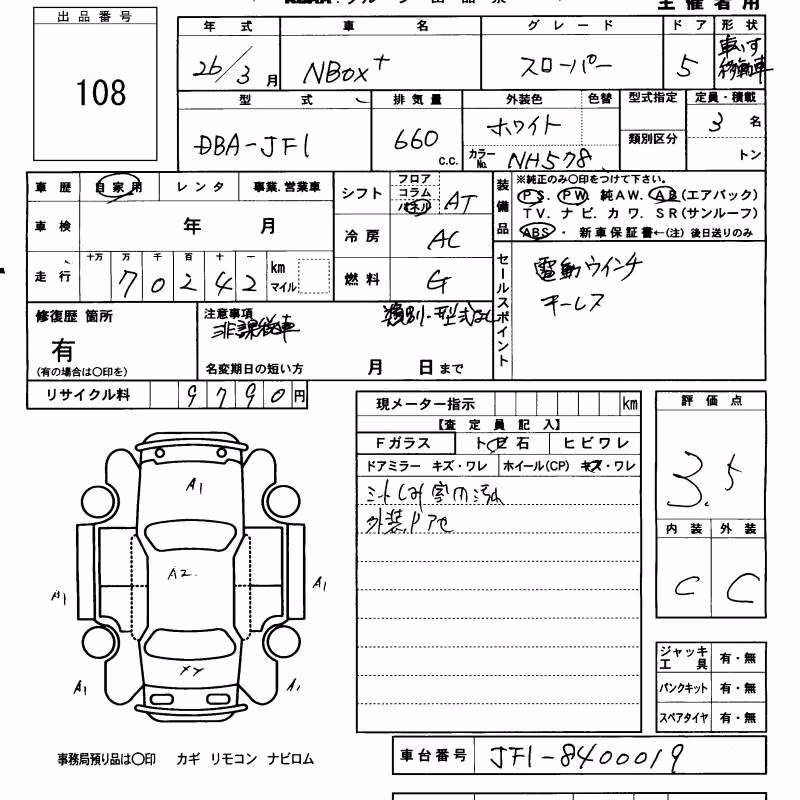 主催者用
出品番号
108
年式 車名 グレード ドア 形状
26/3月 NBox+ スローパー 5 車いす
移動車
型式 排気量 外装色 色替 型式指定 定員・積載
DBA-JF1 660 c.c. ホワイト 3 名
カラーNo. NH578 類別区分 トン
車歴 自家用 レンタ 事業.営業車
シフト フロア コラム パネル AT
装備品 ※純正のみ○印をつけて下さい。
PS. PW. 純AW. AB(エアバック)
TV. ナビ. カワ. SR(サンルーフ)
ABS・ 新車保証書←(注) 後日送りのみ
車検 年 月
冷房 AC
走行 十万 万 千 百 十 一
70242 km マイル
燃料 G
セールスポイント
電動ウインチ
キーレス
修復歴 箇所
有
(有の場合は○印を)
注意事項
非課税車
類別・型式なし
名変期日の短い方 月 日まで
リサイクル料 9790円
現メーター指示 km
【査定員記入】
Fガラス トビ石 ヒビワレ
ドアミラー キズ・ワレ ホイール(CP) キズ・ワレ
外装ドアセ
評価点
3.5
内装 外装
C C
A1
A2
A1 A1
XY
A1 A1
ジャッキ工具 有・無
パンクキット 有・無
スペアタイヤ 有・無
事務局預り品は○印 カギ リモコン ナビロム
車台番号 JF1-8400019